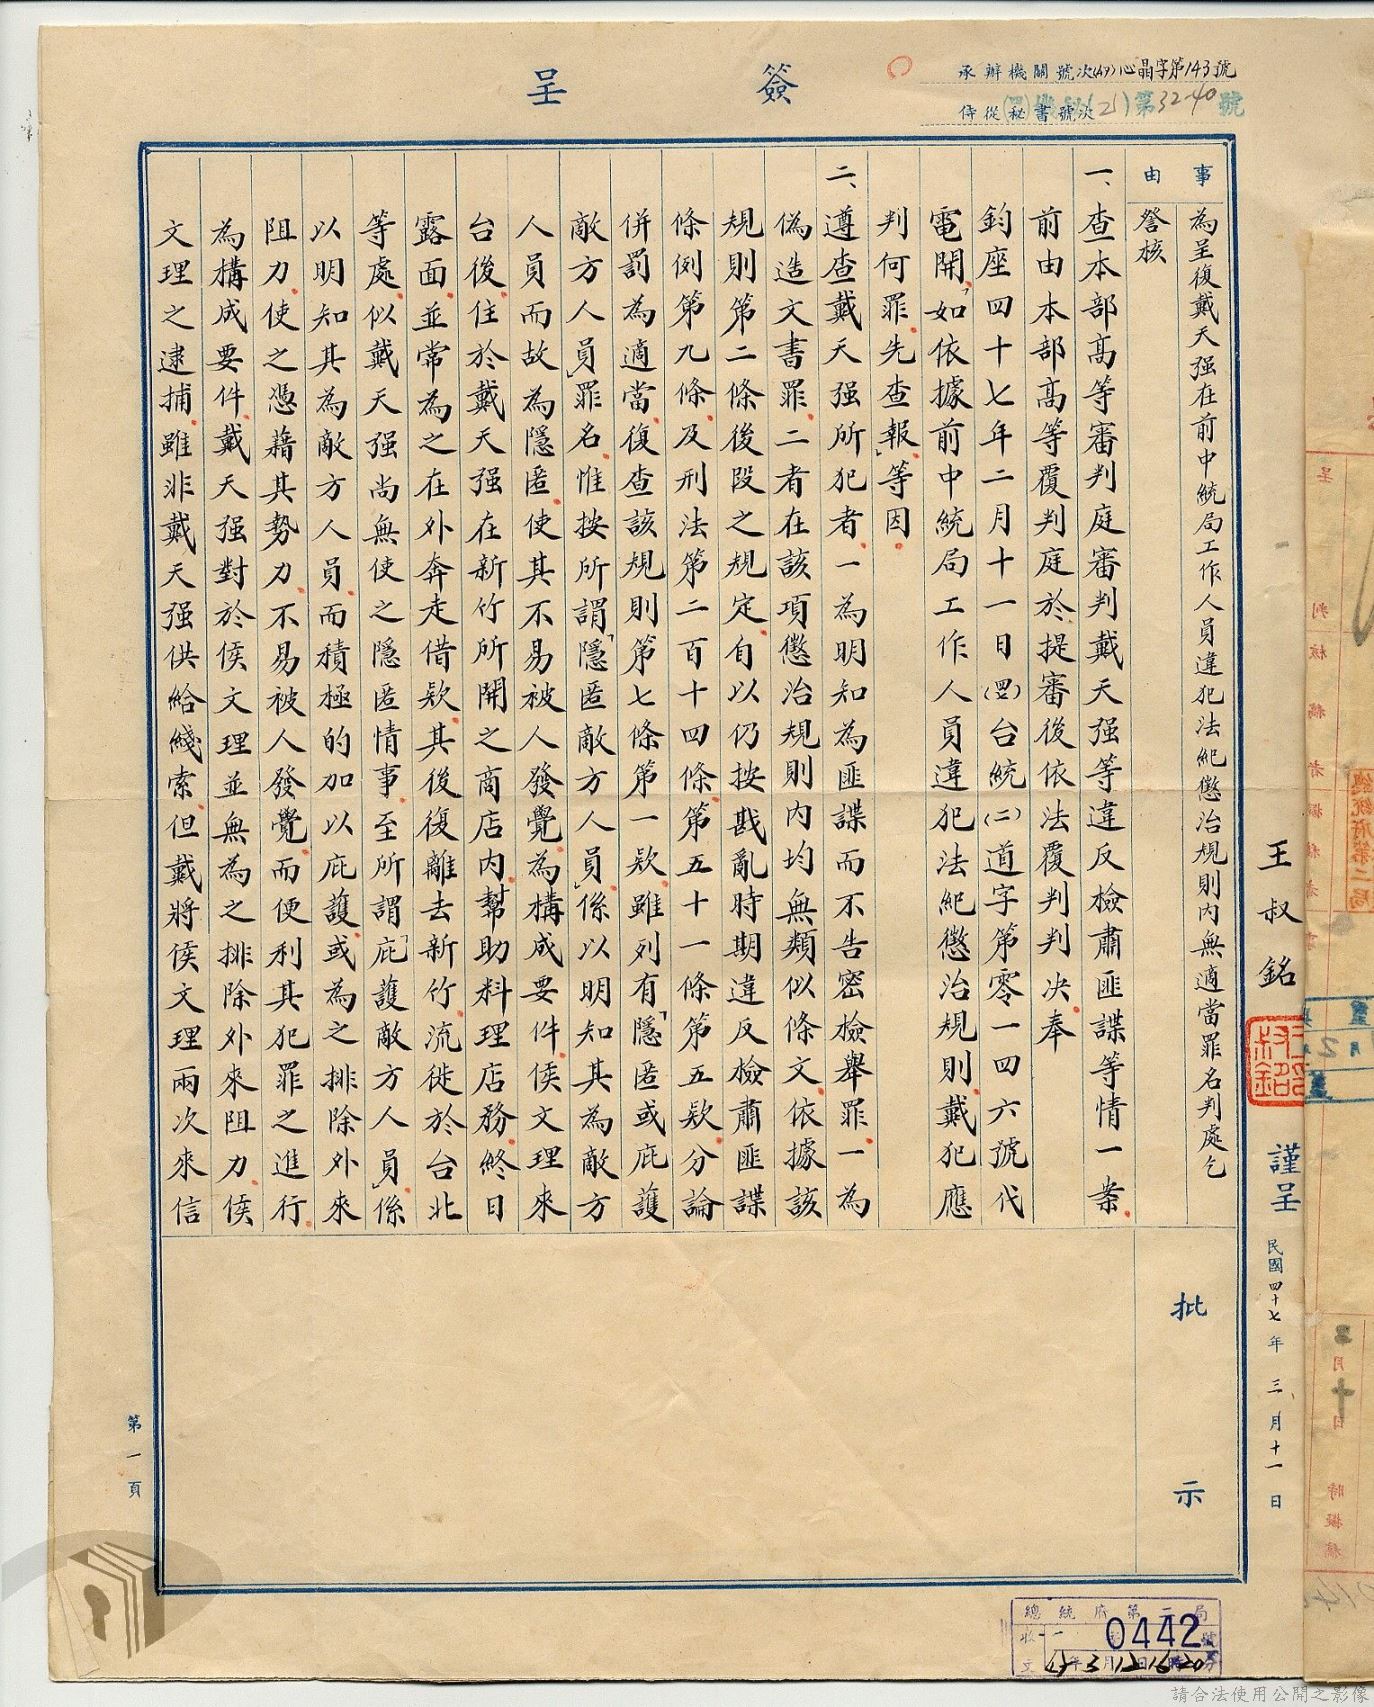 簽呈
承辦機關號次(47)心晶字第143號
侍從秘書號次
第3240號
王叔銘
謹呈
民國四十七年三月十一日
事由
為呈復戴天强在前中統局工作人員違犯法紀懲治規則內無適當罪名判處乞
詧核
批示
一、查本部高等審判庭審判戴天强等違反檢肅匪諜等情一案
前由本部高等覆判庭於提審後依法覆判判決奉
鈞座四十七年二月十一日(四七)台統(二)道字第零一四六號代
電開「如依據前中統局工作人員違犯法紀懲治規則戴犯應
判何罪先查報」等因
二、遵查戴天强所犯者一為明知為匪諜而不告密檢舉罪一為
偽造文書罪二者在該項懲治規則內均無類似條文依據該
規則第二條後段之規定自以仍按戡亂時期違反檢肅匪諜
條例第九條及刑法第二百十四條第五十一條第五款分論
併罰為適當復查該規則第七條第一款雖列有「隱匿或庇護
敵方人員」罪名惟按所謂「隱匿敵方人員」係以明知其為敵方
人員而故為隱匿使其不易被人發覺為構成要件侯文理來
台後住於戴天强在新竹所開之商店內幫助料理店務終日
露面並常為之在外奔走借款其後復離去新竹流徙於台北
等處似戴天强尚無使之隱匿情事至所謂「庇護敵方人員」係
以明知其為敵方人員而積極的加以庇護或為之排除外來
阻力使之憑藉其勢力不易被人發覺而便利其犯罪之進行
為構成要件戴天强對於侯文理並無為之排除外來阻力侯
文理之逮捕雖非戴天强供給綫索但戴將侯文理兩次來信
第一頁
總統府第二局
0442
請合法使用公開之影像